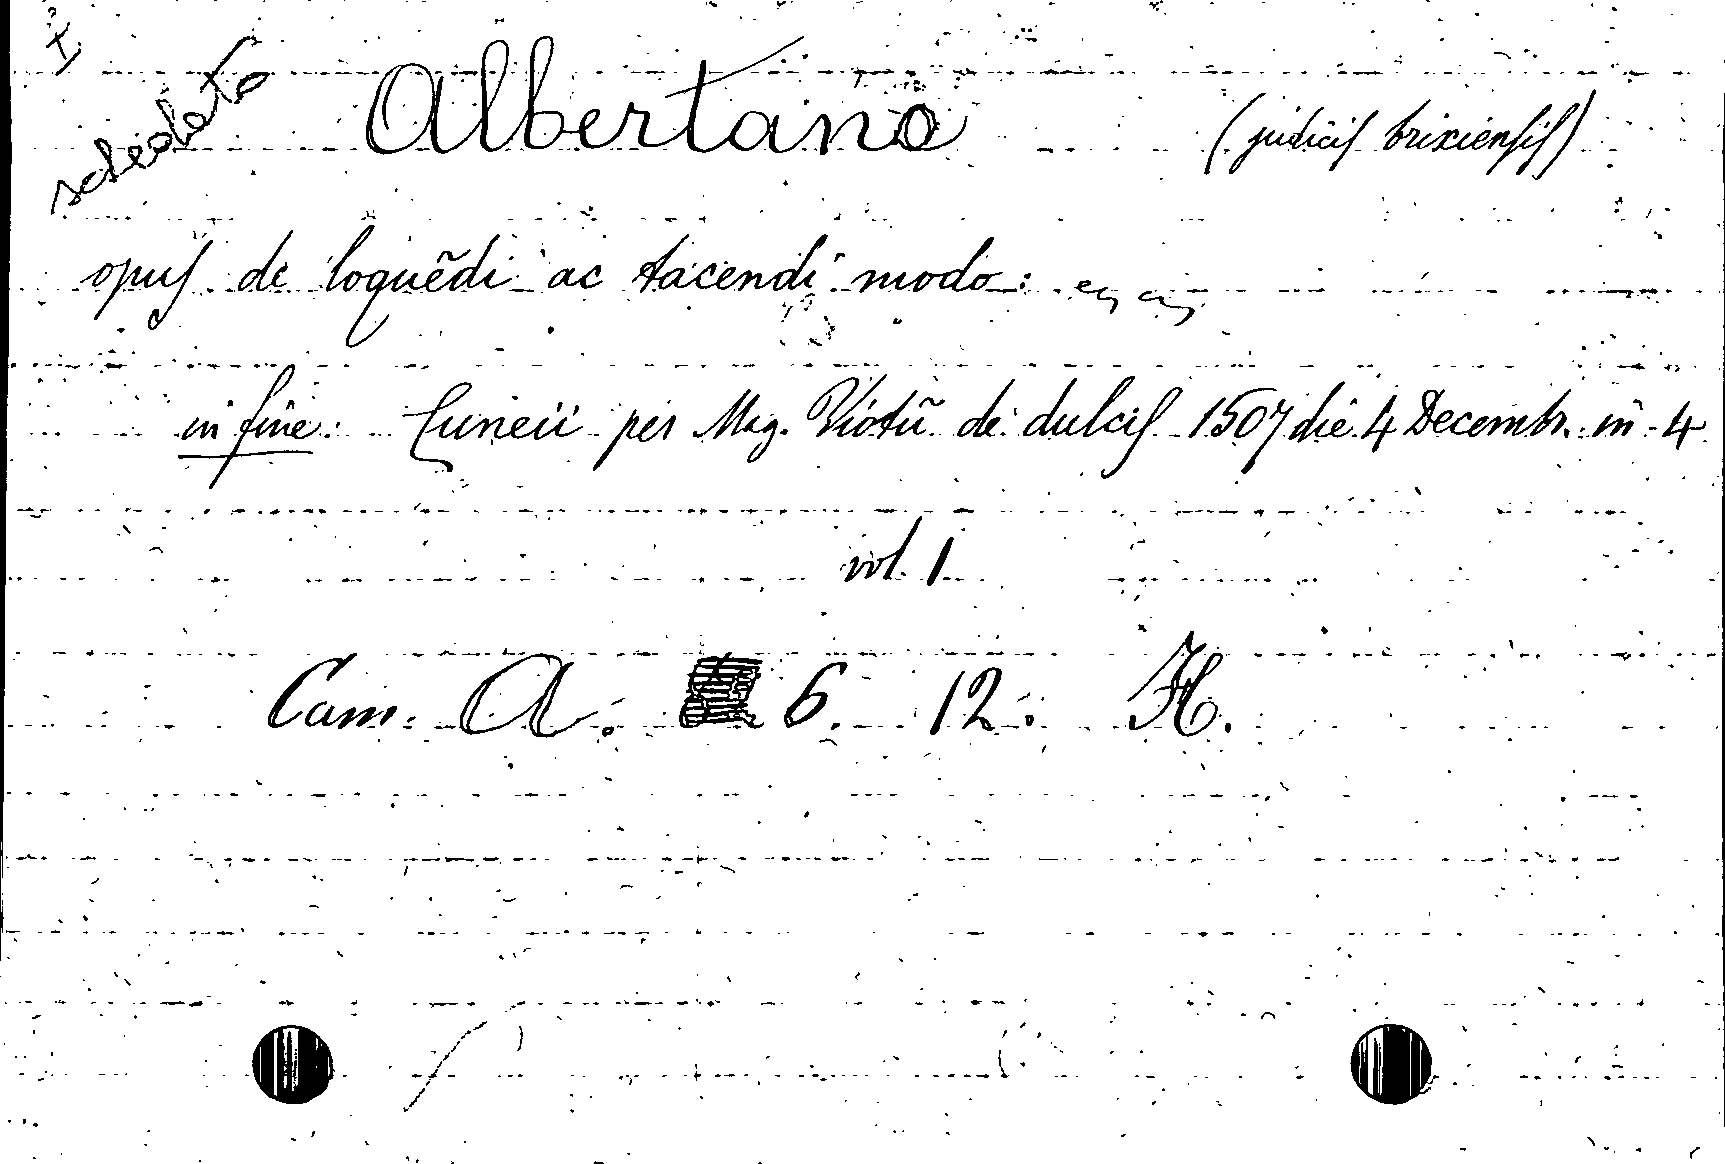 I
schedato
Albertano (judicis brixiensis)
opus de loquẽdi ac tacendi modo:
in fine: Cuneii per Mag. Viotũ de dulcis 1507 die 4 Decembr. in 4
vol. 1
Cam. A. 6. 12. H.